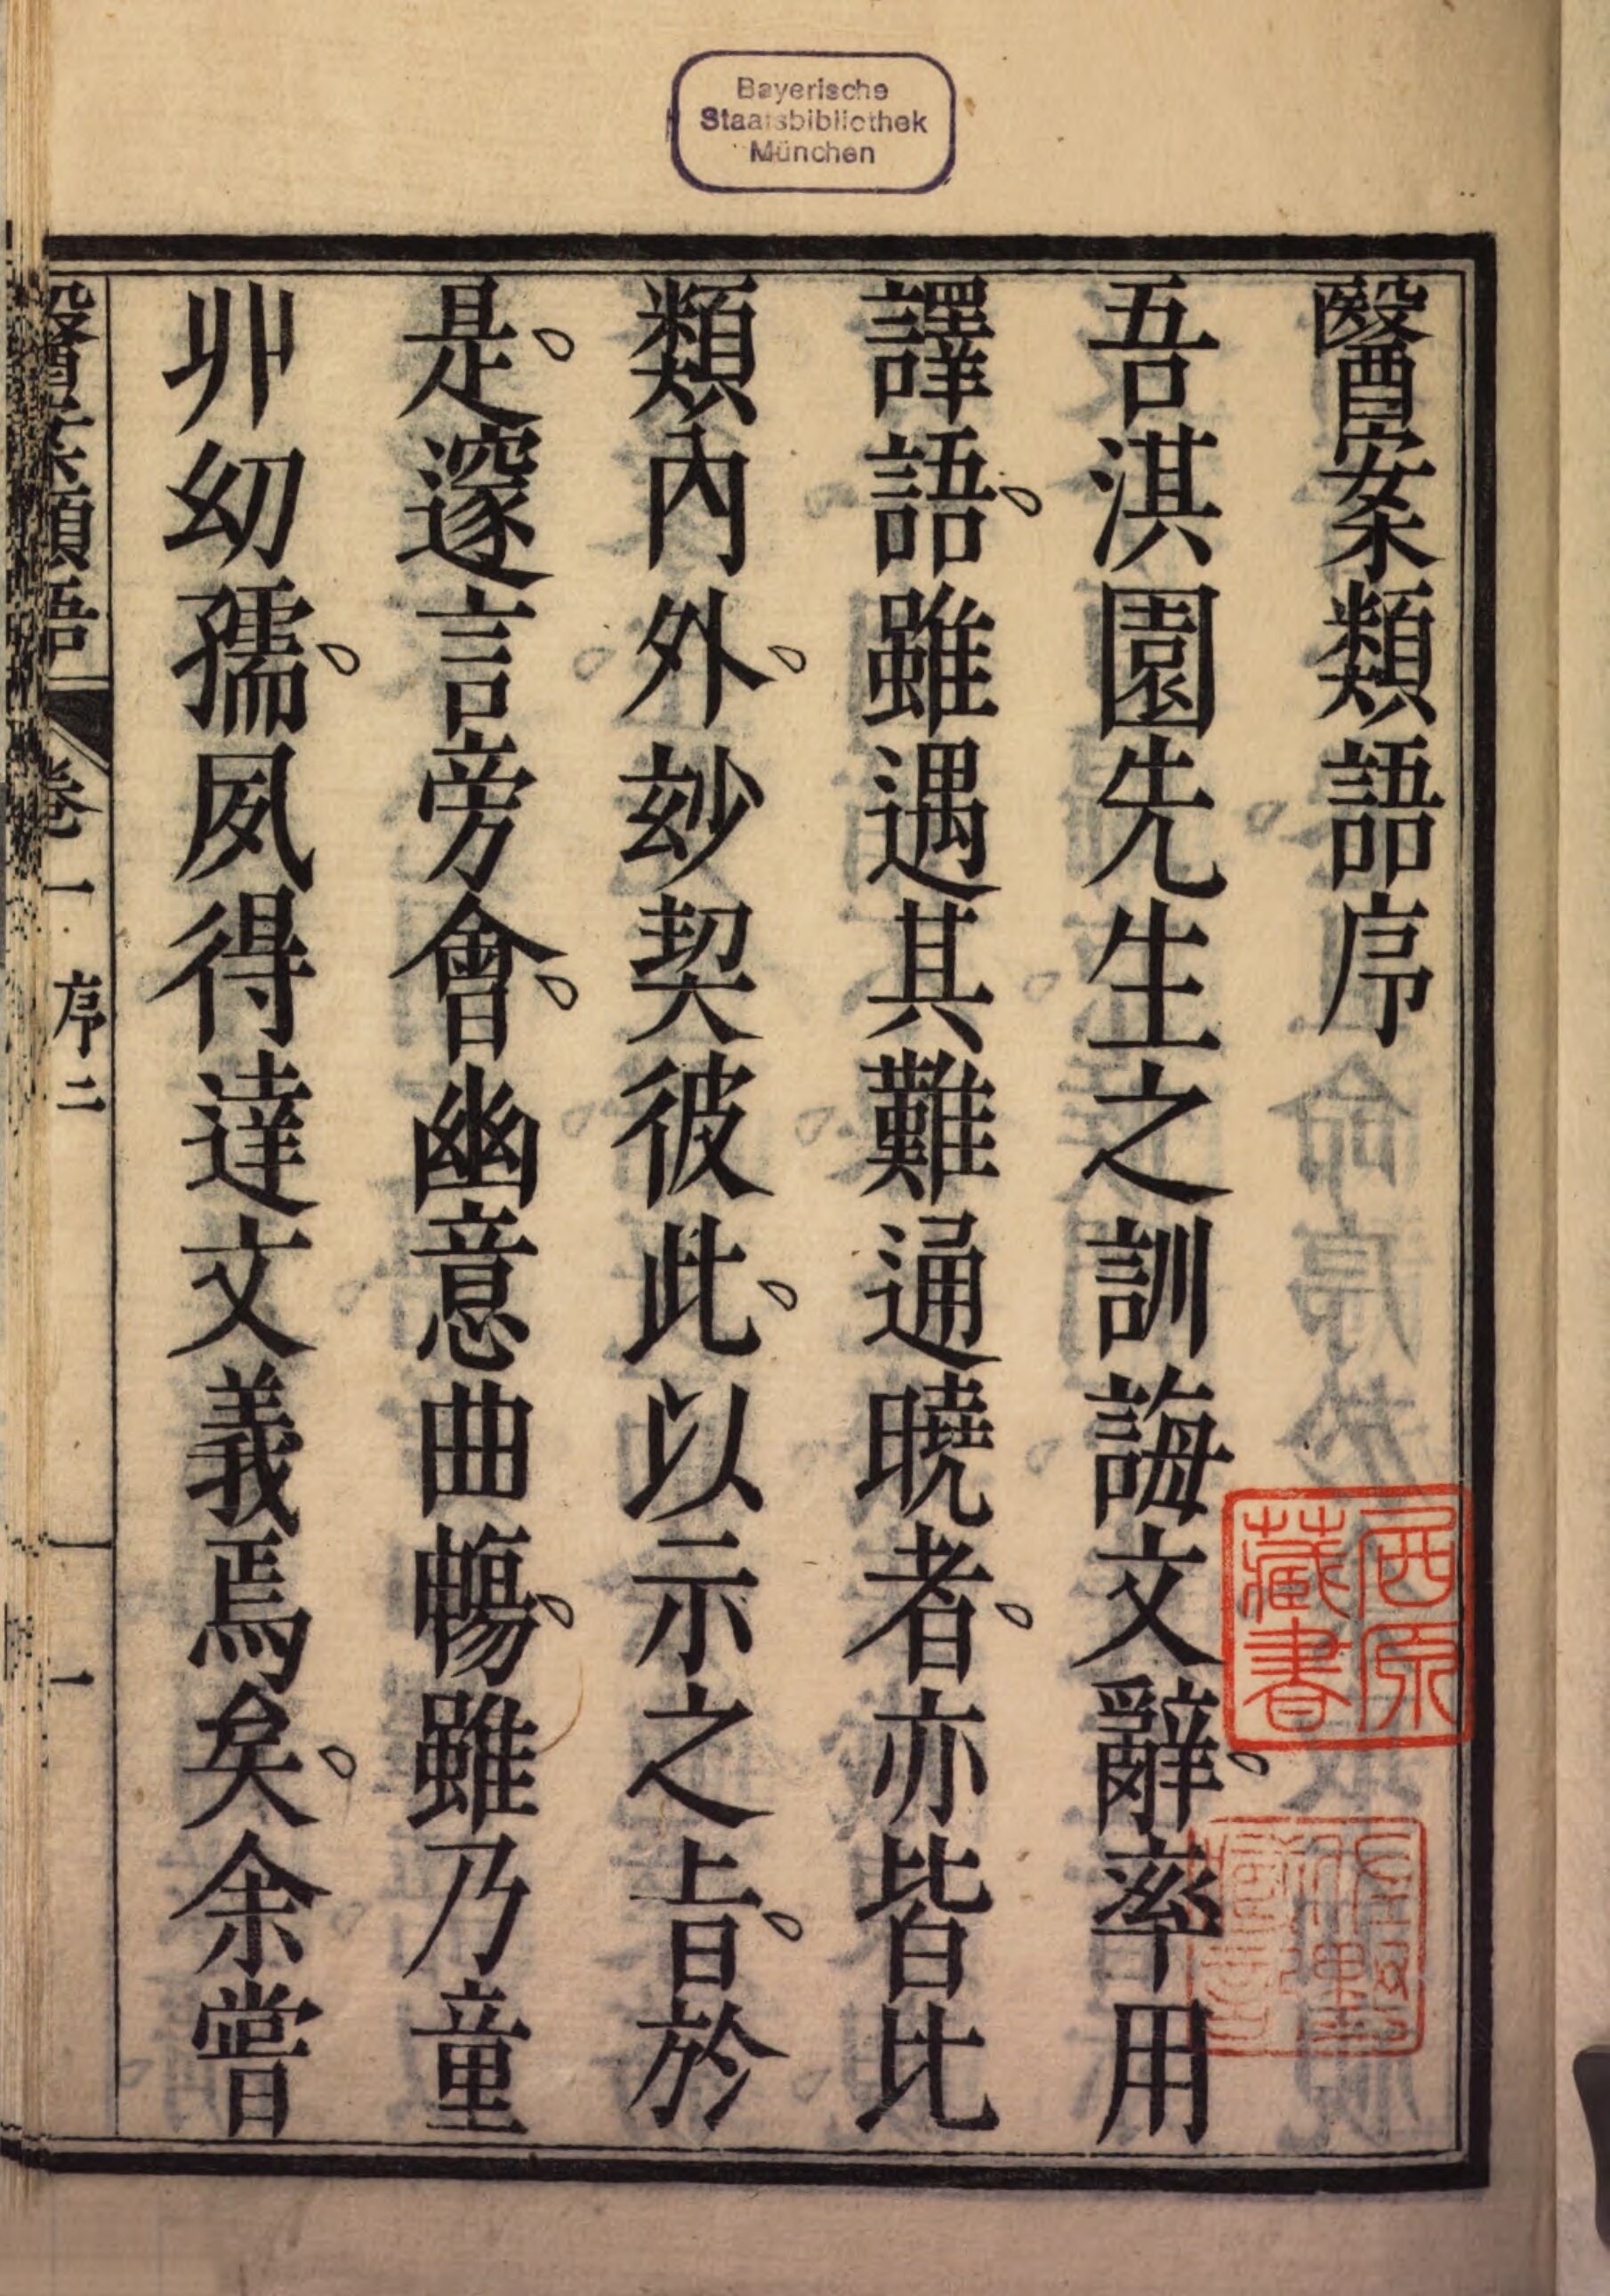 Bayerische
Staatsbibliothek
München
醫案類語序
吾淇園先生之訓誨文辭。率用
譯語。雖遇其難通曉者。亦皆比
類內外。玅契彼此。以示之㫖。於
是。邃言旁會。幽意曲暢。雖乃童
丱幼孺。夙得達文義焉矣。余嘗
西原
藏書
醫案類語
卷一
序二
一